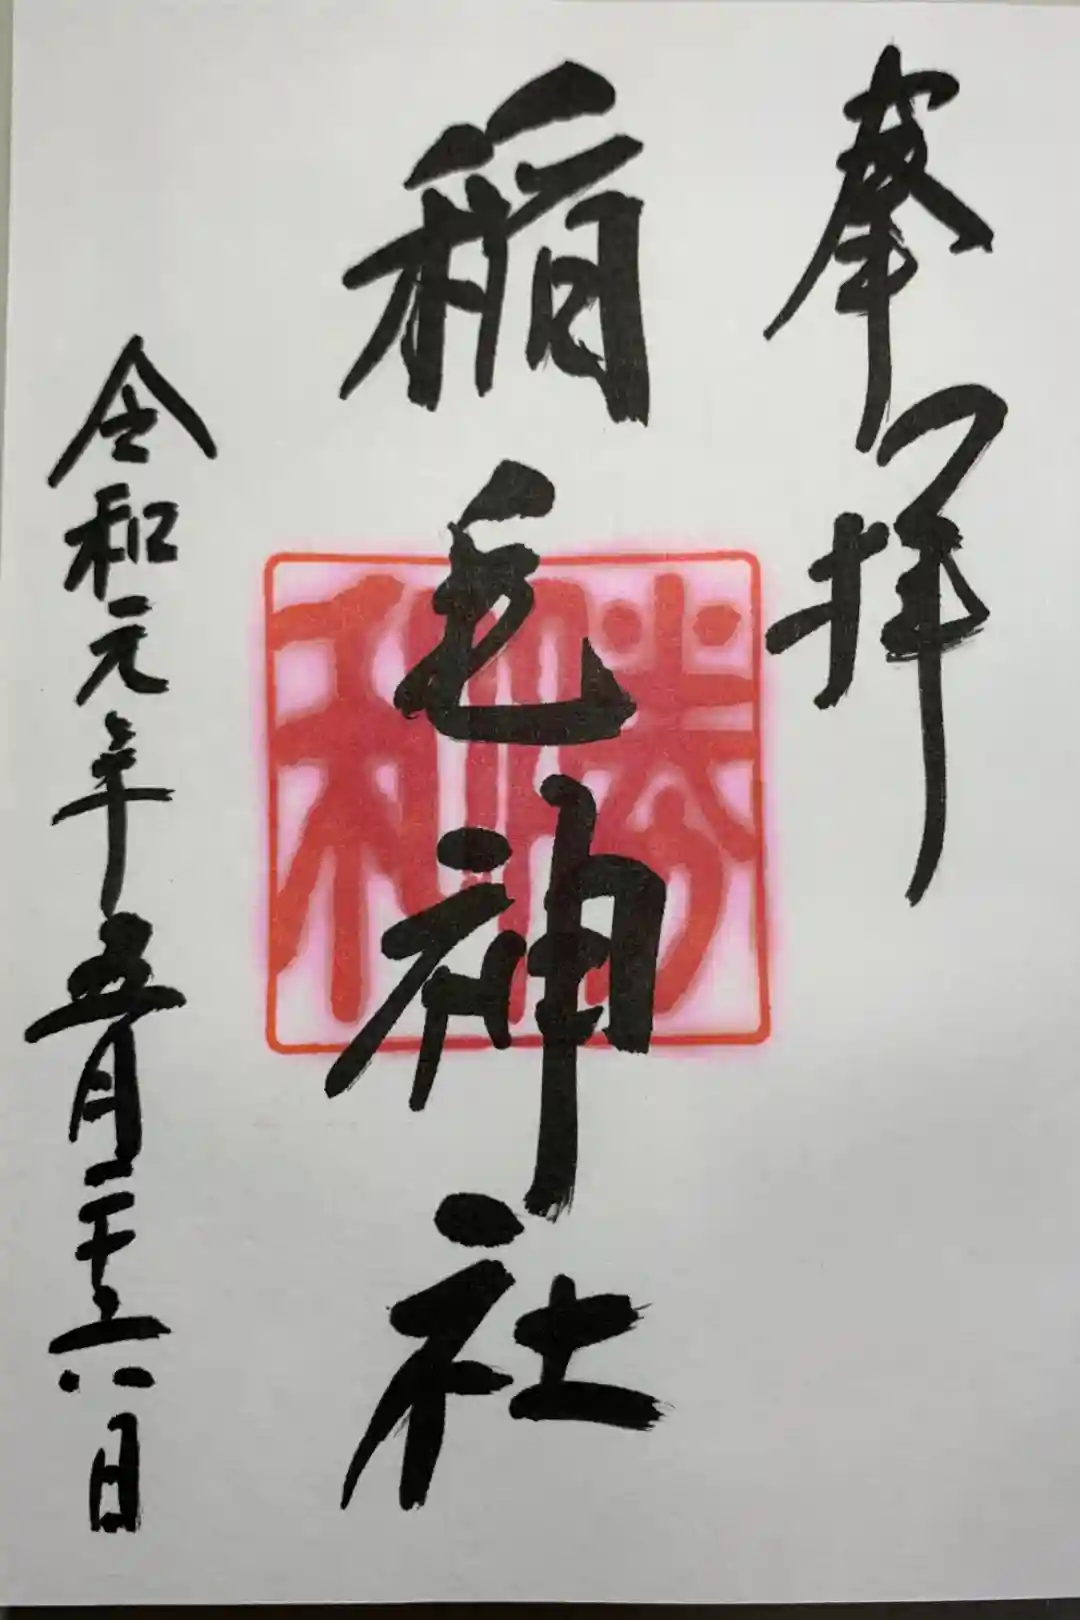 奉拝
稲毛神社
令和元年五月二十六日